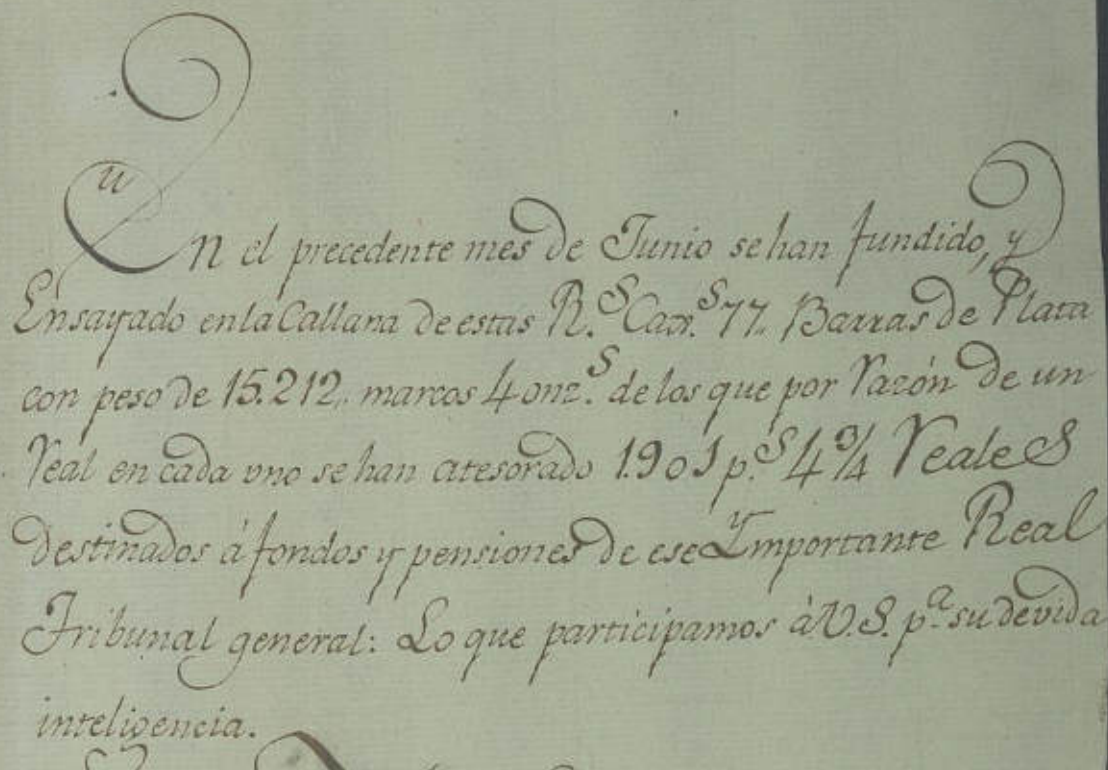 En el precedente mes de Junio se han fundido, y
Ensayado en la Callana de estas R.s Cax.s 77. Barras de Plata
con peso de 15.212. marcos 4 onz.s de los que por razón de un
real en cada vno se han atesorado 1.901 p.s 4 3/4 reales
destinados à fondos y pensiones de ese Ymportante Real
Tribunal general: Lo que participamos à V.S. p.a su devida
inteligencia.